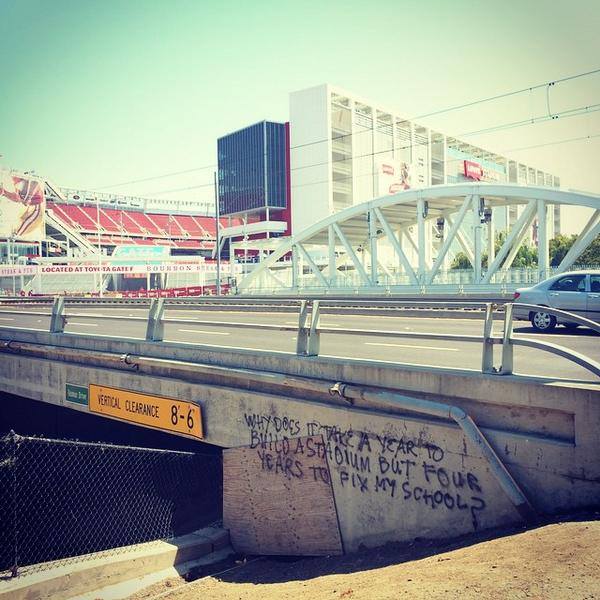 STEAK & FIS
LOCATED AT TOYOTA GATE F
BOURBON STEAK
VERTICAL CLEARANCE 8'-6"
WHY DOES IT TAKE A YEAR TO
BUILD A STADIUM BUT FOUR
YEARS TO FIX MY SCHOOL?